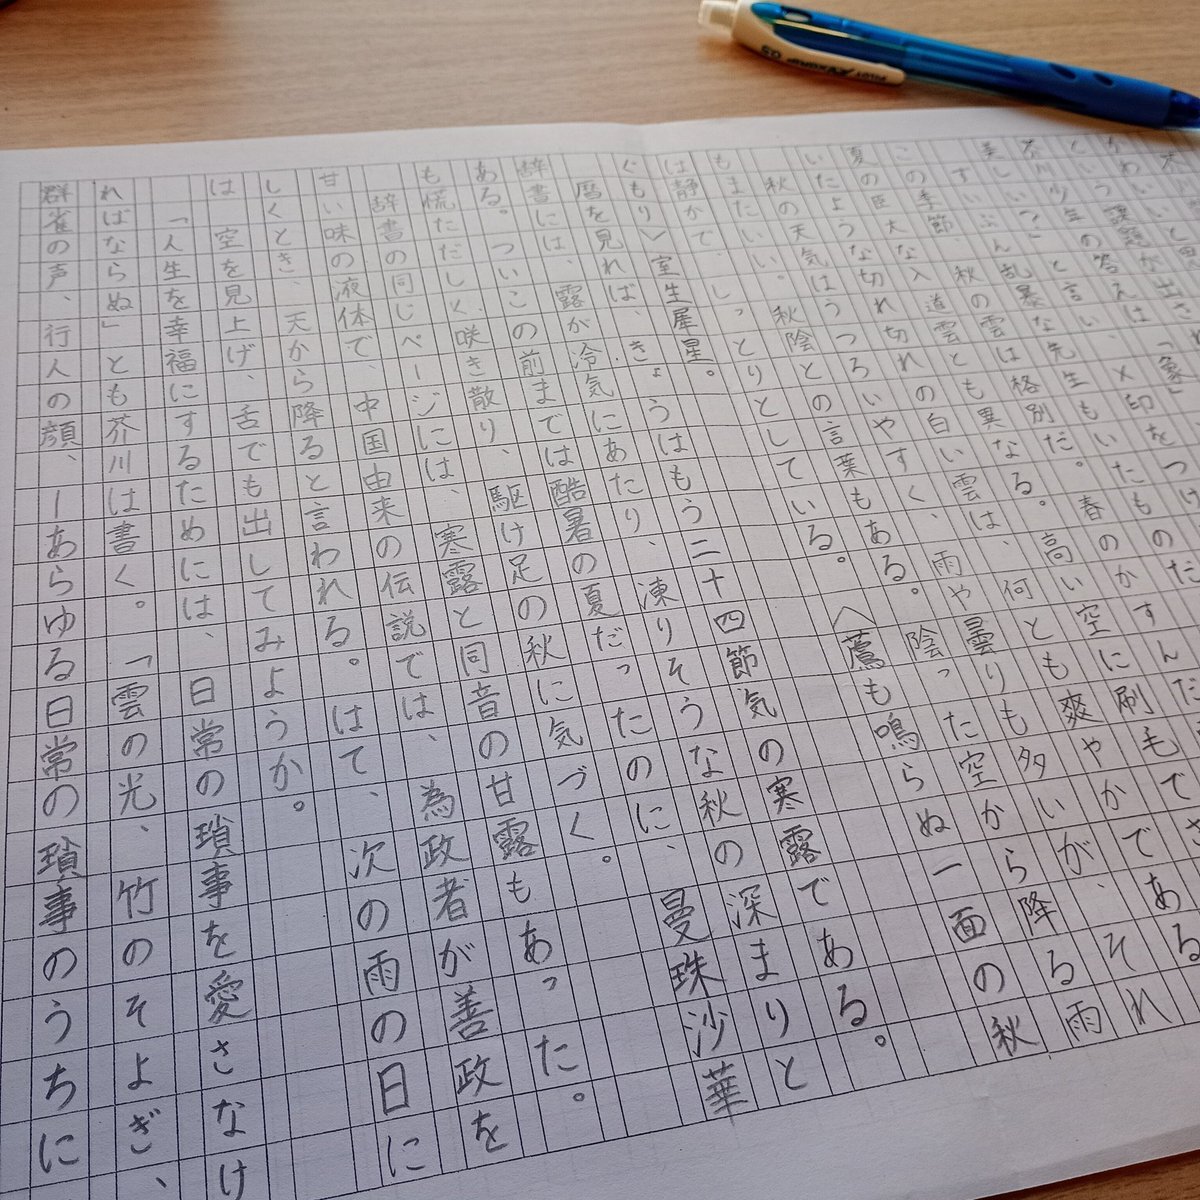 かわいいと思
という課題が出され
芥川少年の答えは「象」
美しい?」と言い、×印をつけ
ずいぶん乱暴な先生もいたものだ
この季節、秋の雲は格別だ。春のかすんだ
夏の巨大な入道雲とも異なる。高い空に刷毛でさ
いたような切れ切れの白い雲は、何とも爽やかである
秋の天気はうつろいやすく、雨や曇りも多いが、それ
もまたいい。秋陰との言葉もある。陰った空から降る雨
は静かで、しっとりとしている。〈鷹も鳴らぬ一面の秋
ぐもり〉室生犀星。
暦を見れば、きょうはもう二十四節気の寒露である。
辞書には、露が冷気にあたり、凍りそうな秋の深まりと
ある。ついこの前までは酷暑の夏だったのに、曼珠沙華
も慌ただしく咲き散り、駆け足の秋に気づく。
辞書の同じページには、寒露と同音の甘露もあった。
甘い味の液体で、中国由来の伝説では、為政者が善政を
しくとき、天から降ると言われる。はて、次の雨の日に
は空を見上げ、舌でも出してみようか。
「人生を幸福にするためには、日常の瑣事を愛さなけ
ればならぬ」とも芥川は書く。「雲の光、竹のそよぎ、
群雀の声、行人の顔、―あらゆる日常の瑣事のうちに
PILOT 0.5